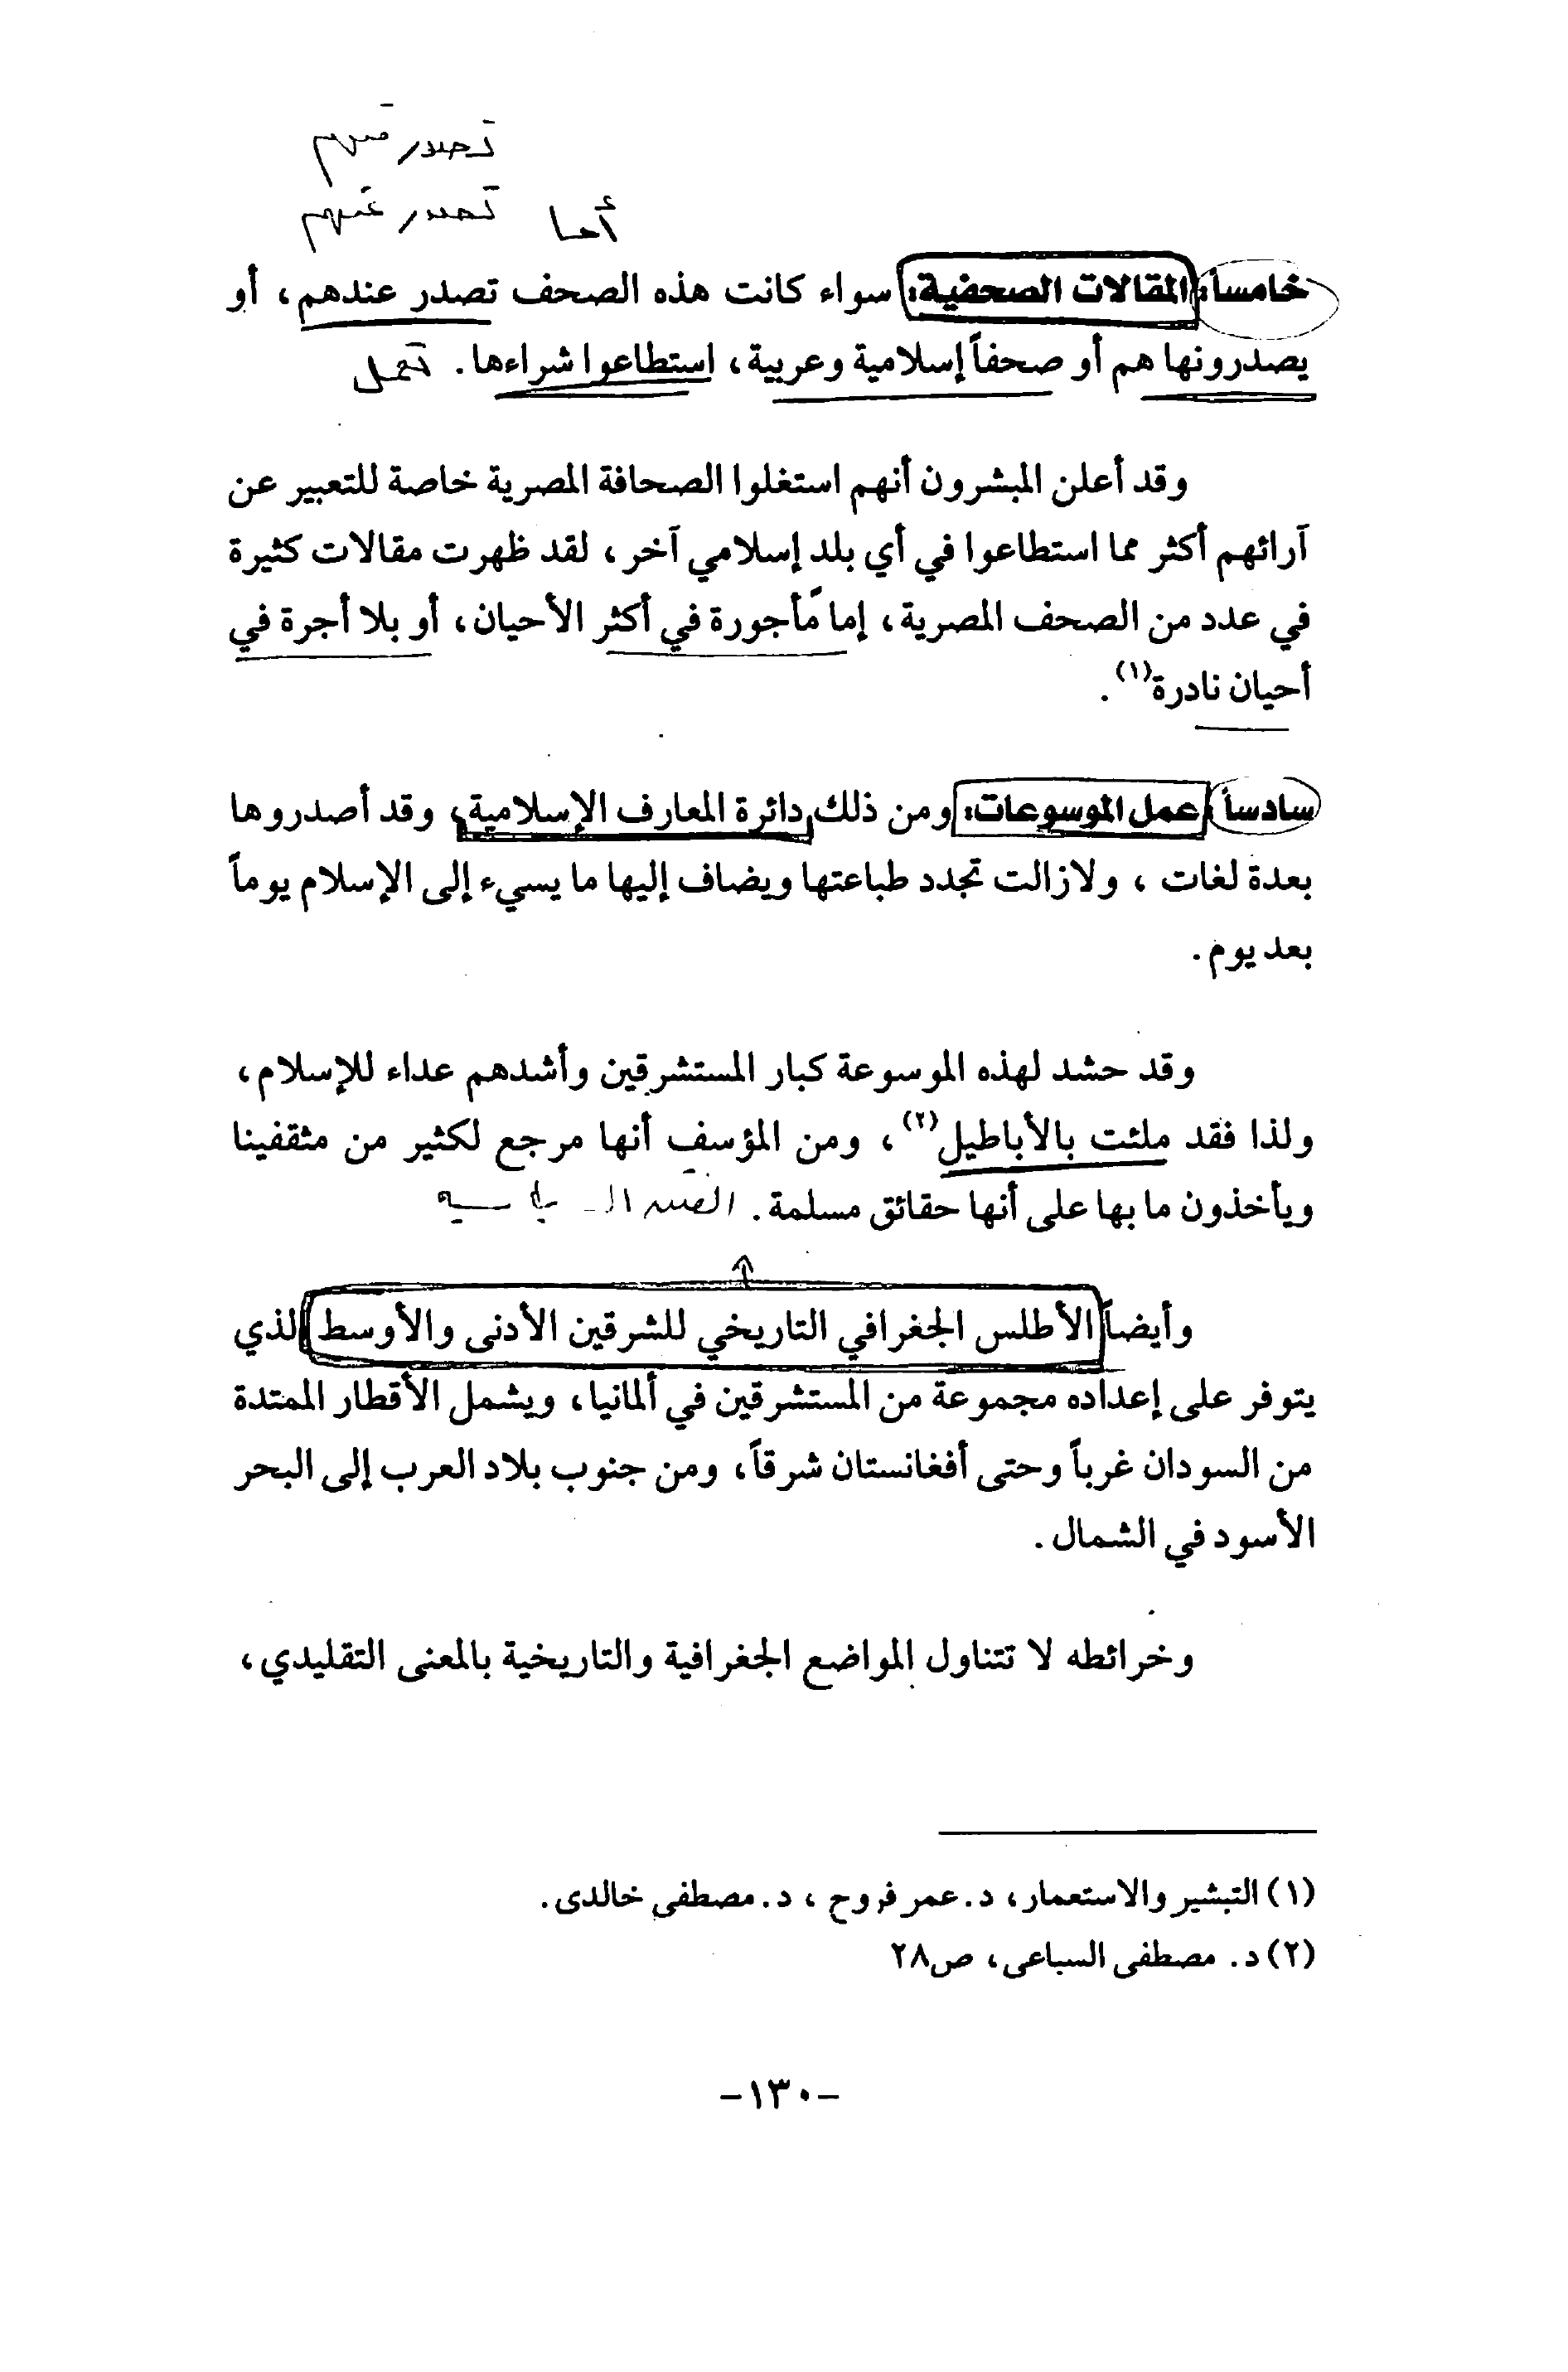 تصدر منهم
تصدر عنهم
أما
خامساً: المقالات الصحفية: سواء كانت هذه الصحف تصدر عندهم، أو
يصدرونها هم أو صحفاً إسلامية وعربية، استطاعوا شراءها.
وقد أعلن المبشرون أنهم استغلوا الصحافة المصرية خاصة للتعبير عن
آرائهم أكثر مما استطاعوا في أي بلد إسلامي آخر، لقد ظهرت مقالات كثيرة
في عدد من الصحف المصرية، إما مأجورة في أكثر الأحيان، أو بلا أجرة في
أحيان نادرة(١).
سادساً: عمل الموسوعات: ومن ذلك دائرة المعارف الإسلامية، وقد أصدروها
بعدة لغات، ولازالت تجدد طباعتها ويضاف إليها ما يسيء إلى الإسلام يوماً
بعد يوم.
وقد حشد لهذه الموسوعة كبار المستشرقين وأشدهم عداء للإسلام،
ولذا فقد ملئت بالأباطيل(٢)، ومن المؤسف أنها مرجع لكثير من مثقفينا
ويأخذون ما بها على أنها حقائق مسلمة.
وأيضاً الأطلس الجغرافي التاريخي للشرقين الأدنى والأوسط الذي
يتوفر على إعداده مجموعة من المستشرقين في ألمانيا، ويشمل الأقطار الممتدة
من السودان غرباً وحتى أفغانستان شرقاً، ومن جنوب بلاد العرب إلى البحر
الأسود في الشمال.
وخرائطه لا تتناول المواضع الجغرافية والتاريخية بالمعنى التقليدي،
(١) التبشير والاستعمار، د. عمر فروح، د. مصطفى خالدى.
(٢) د. مصطفى السباعى، ص٢٨
-١٣٠-